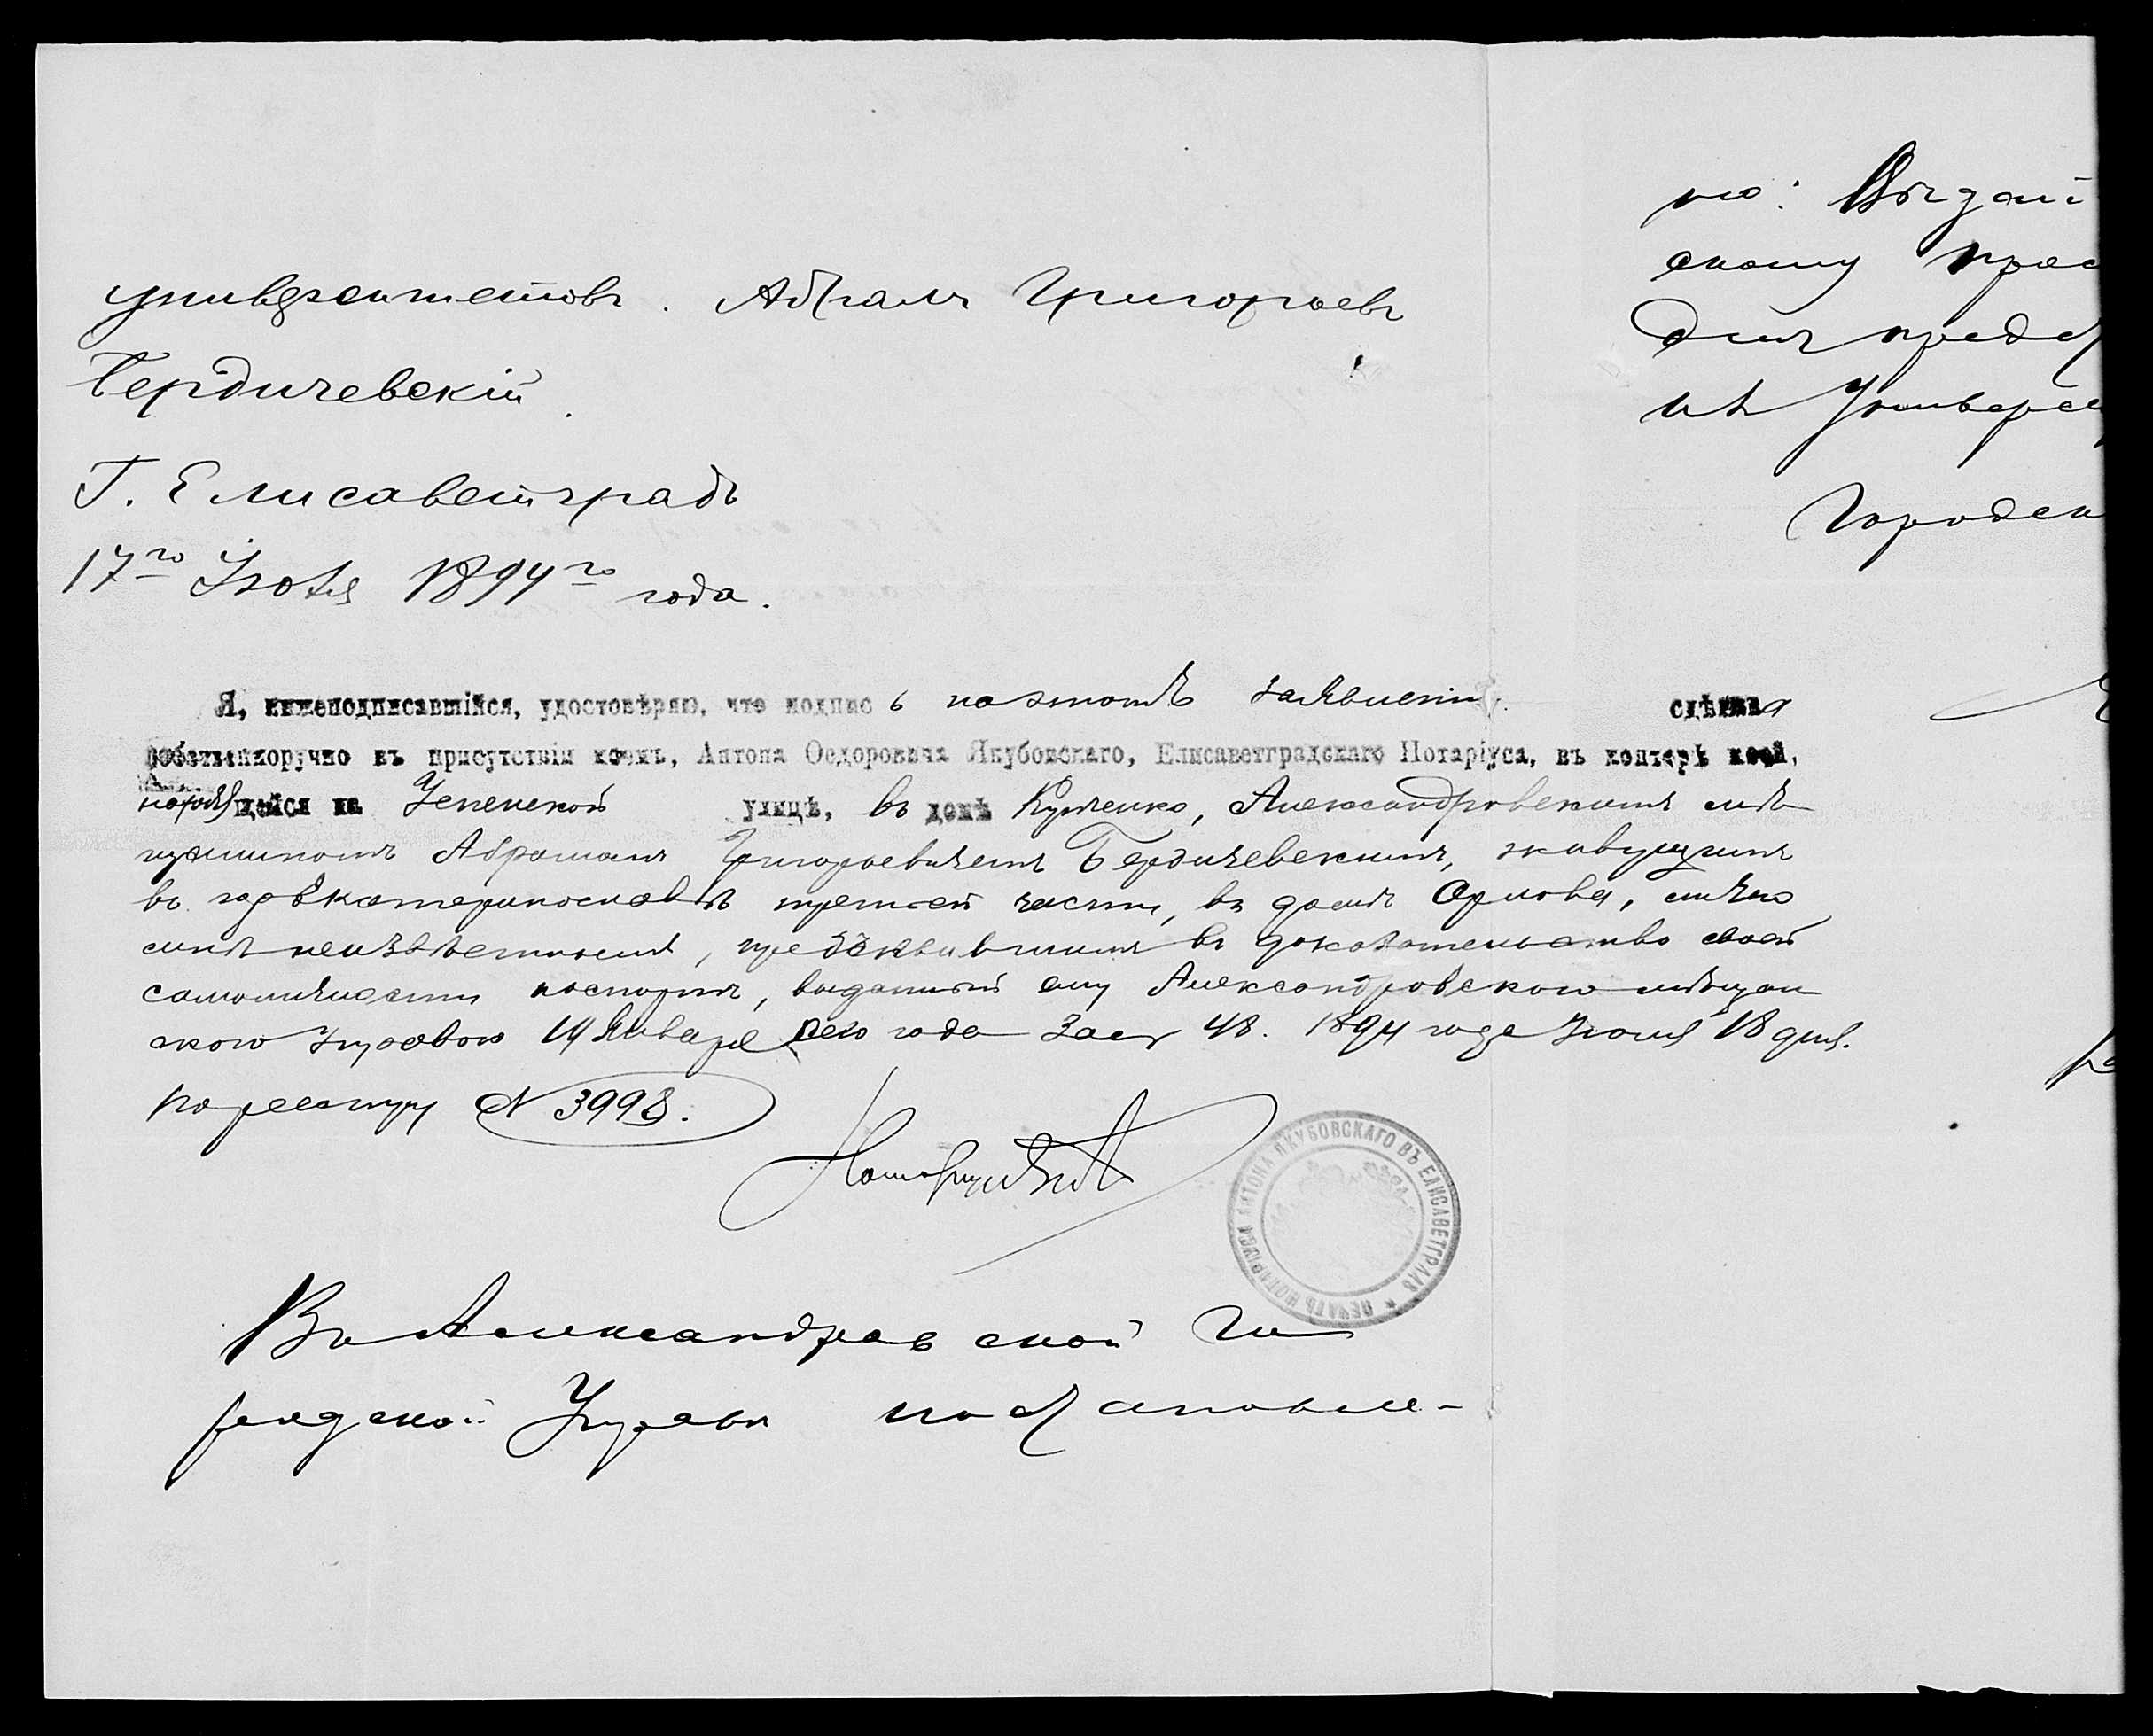 университетовъ. Абрамъ Григорьевъ
Бердичевскій.
Г. Елисаветградъ
17го Іюля 1894го года.
Я, нижеподписавшійся, удостовѣряю, что подпись на этомъ заявленіи сдѣлана
собственноручно въ присутствіи моемъ, Антона Ѳедоровича Якубовскаго, Елисаветградскаго Нотаріуса, въ конторѣ моей,
находящейся на Успенской улицѣ, въ домѣ Александровскимъ мѣ
щаниномъ Абрамомъ Григорьевичемъ Бердичевскимъ, живущимъ
въ гор Екатеринославѣ третьей части, въ домѣ Орлова, лично
мнѣ неизвѣстнымъ, предъявившимъ въ доказательство своей
самоличности паспортъ, выданный ему Александровскою мѣщан
скою Управою 19 Января сего года за № 48. 1894 года Іюля 18 дня.
По реестру № 3998.
Нотаріусъ
ПЕЧАТЬ НОТАРІУСА АНТОНА ЯКУБОВСКАГО ВЪ ЕЛИСАВЕТГРАДѢ
Въ Александровской Го
родской Управѣ постановле-
но: Выдат
скому прос
для предст
нѣ Универси
Городск